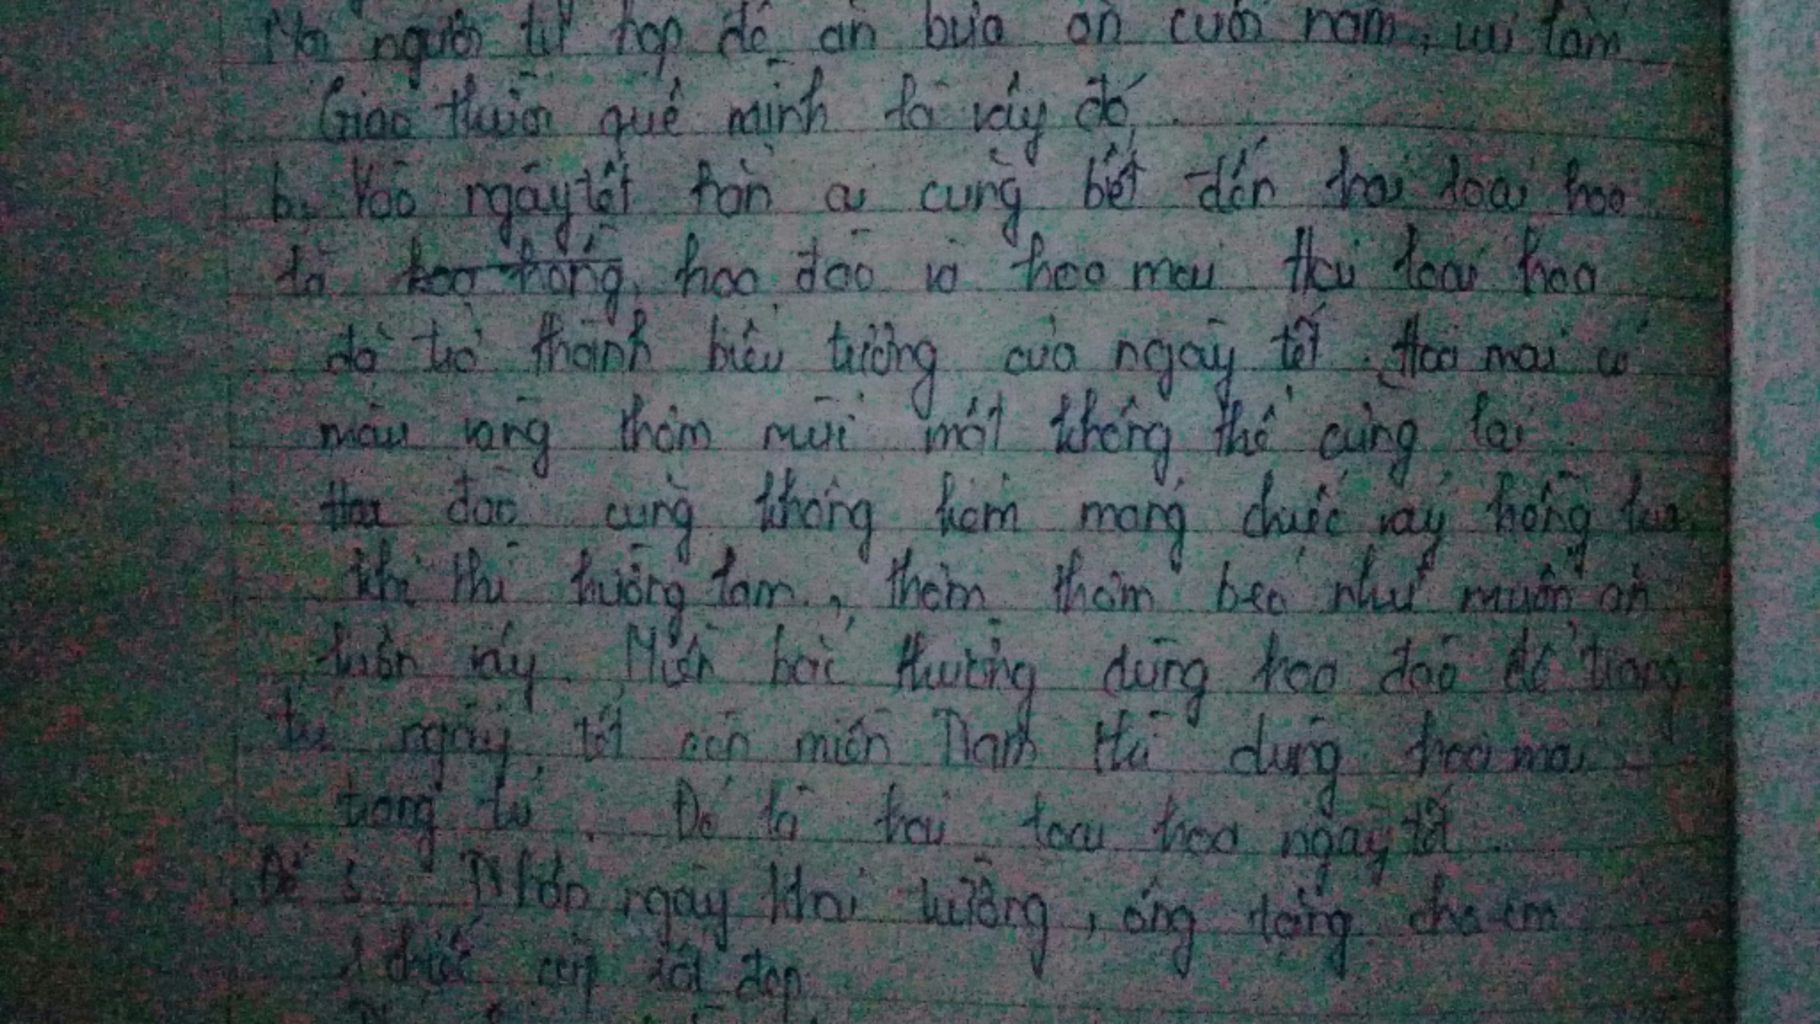 Mọi người tụ họp để ăn bữa ăn cuối năm, vui lắm
Giao thừa quê mình là vậy đó.
b. Vào ngày tết hẳn ai cũng biết đến hai loài hoa
là hoa hồng, hoa đào và hoa mai. Hai loài hoa
đã trở thành biểu tượng của ngày tết. Hoa mai có
màu vàng thơm mùi một không thể cùng lại
Hoa đào cũng không kém mang chiếc váy hồng
khi thì hương lam, thơm thơm béo như muốn ăn
luôn vậy. Miền bắc thường dùng hoa đào để trang
trí ngày tết còn miền Nam thì dùng hoa mai
trang trí. Đó là hai loài hoa ngày tết.
Đề 3. Nhân ngày khai trường, ông tặng cho em
1 chiếc cặp rất đẹp